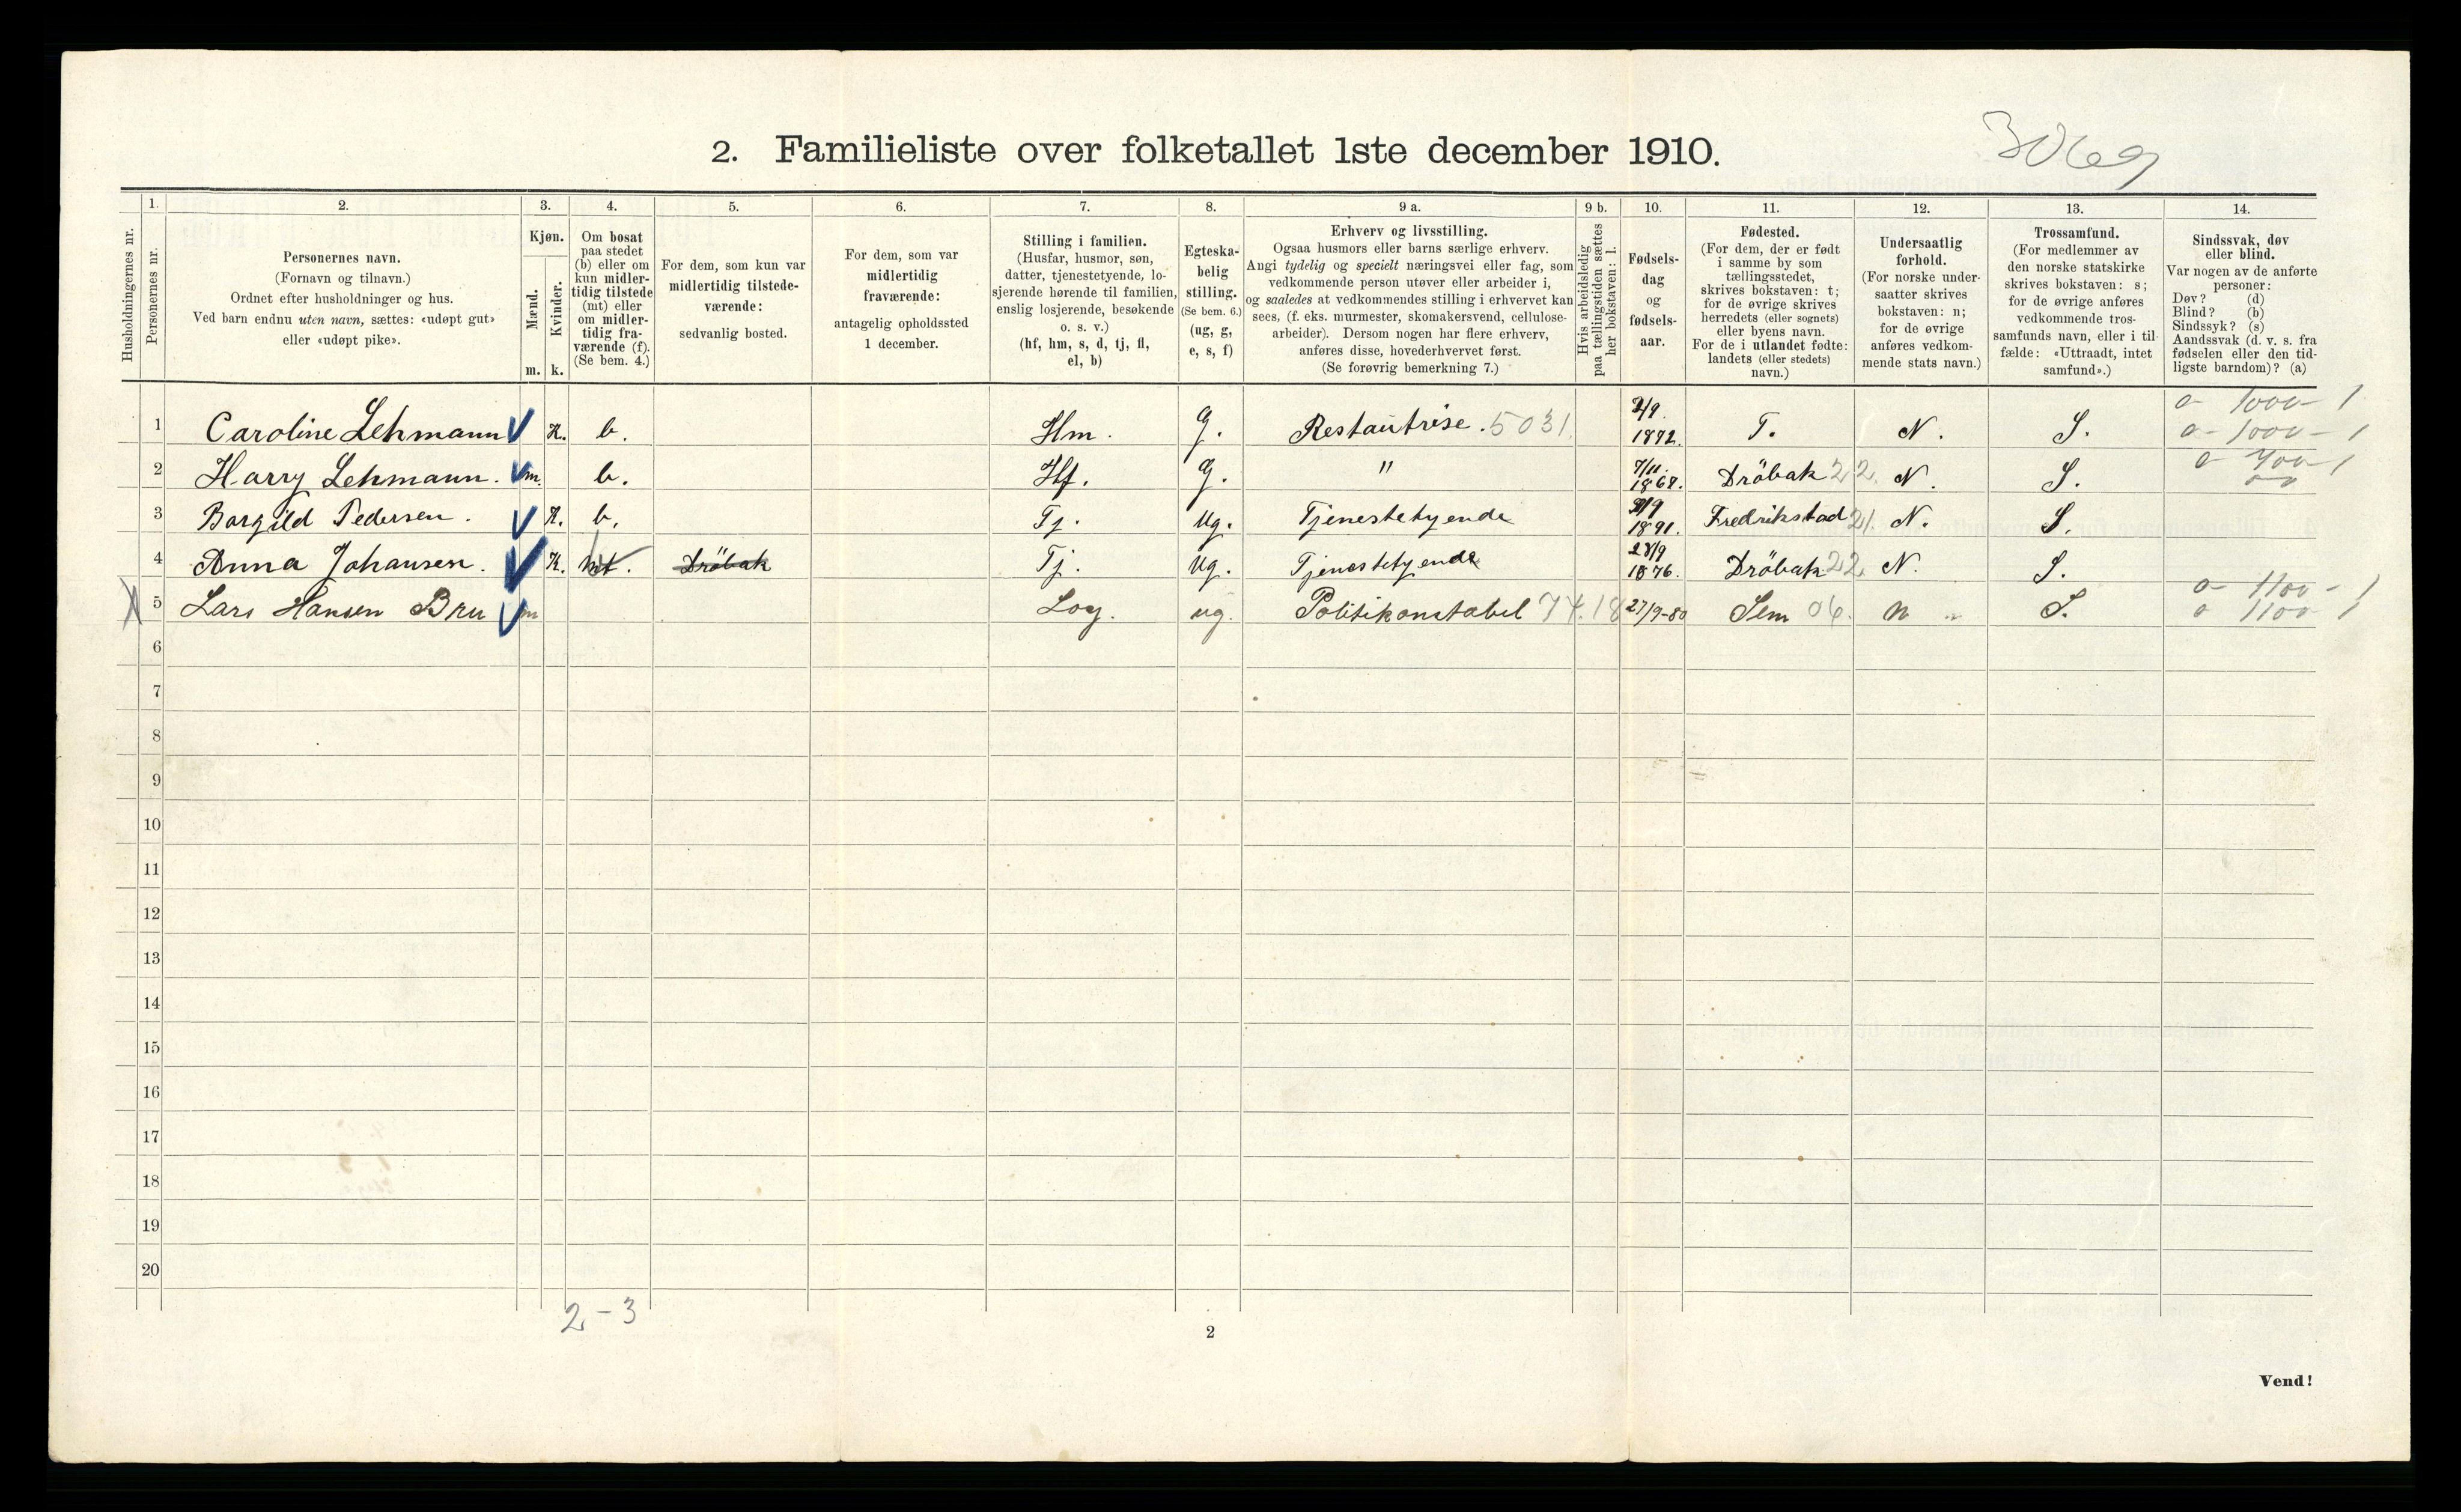 3069
2. Familieliste over folketallet 1ste december 1910.
1. 2. 3. 4. 5. 6. 7. 8. 9 a. 9 b. 10. 11. 12. 13. 14.
Husholdningernes nr.
Personernes nr.
Personernes navn.
(Fornavn og tilnavn.)
Ordnet efter husholdninger og hus.
Ved barn endnu uten navn, sættes: «udøpt gut»
eller «udøpt pike».
Kjøn.
Mænd.
Kvinder.
m. k.
Om bosat
paa stedet
(b) eller om
kun midler-
tidig tilstede
(mt) eller
om midler-
tidig fra-
værende (f).
(Se bem. 4.)
For dem, som kun var
midlertidig tilstede-
værende:
sedvanlig bosted.
For dem, som var
midlertidig
fraværende:
antagelig opholdssted
1 december.
Stilling i familien.
(Husfar, husmor, søn,
datter, tjenestetyende, lo-
sjerende hørende til familien,
enslig losjerende, besøkende
o. s. v.)
(hf, hm, s, d, tj, fl,
el, b)
Egteska-
belig
stilling.
(Se bem. 6.)
(ug, g,
e, s, f)
Erhverv og livsstilling.
Ogsaa husmors eller barns særlige erhverv.
Angi tydelig og specielt næringsvei eller fag, som
vedkommende person utøver eller arbeider i,
og saaledes at vedkommendes stilling i erhvervet kan
sees, (f. eks. murmester, skomakersvend, cellulose-
arbeider). Dersom nogen har flere erhverv,
anføres disse, hovederhvervet først.
(Se forøvrig bemerkning 7.)
Hvis arbeidsledig
paa tællingstiden sættes
her bokstaven: l.
Fødsels-
dag
og
fødsels-
aar.
Fødested.
(For dem, der er født
i samme by som
tællingsstedet,
skrives bokstaven: t;
for de øvrige skrives
herredets (eller sognets)
eller byens navn.
For de i utlandet fødte:
landets (eller stedets)
navn.)
Undersaatlig
forhold.
(For norske under-
saatter skrives
bokstaven: n;
for de øvrige
anføres vedkom-
mende stats navn.)
Trossamfund.
(For medlemmer av
den norske statskirke
skrives bokstaven: s;
for de øvrige anføres
vedkommende tros-
samfunds navn, eller i til-
fælde: «Uttraadt, intet
samfund».)
Sindssvak, døv
eller blind.
Var nogen av de anførte
personer:
Døv? (d)
Blind? (b)
Sindssyk? (s)
Aandssvak (d. v. s. fra
fødselen eller den tid-
ligste barndom)? (a)
1 Caroline Lehmann K. b. Hm. G. Restautrise. 5031. 1872. T. N. S. 0 - 1000 - 1
0 - 1000 - 1
2 Harry Lehmann. m. b. Hf. G. " 7/11. 1868. Dröbak 22. N. S. 0 - 700 - 1
3 Borgild Pedersen. K. b. Tj. Ug. Tjenestetyende 1891. Fredrikstad 21. N. S.
4 Anna Johansen. K. mt. Dröbak Tj. Ug. Tjenestetyende 28/9 1876. Dröbak 22 N. S.
5 Lars Hansen Bru m Log. ug. Politikonstabel 74.18 27/9-80 Sem 06. n S. 0 - 1100 - 1
0 1100 1
6
7
8
9
10
11
12
13
14
15
16
17
18
19
20
2 - 3
2
Vend!